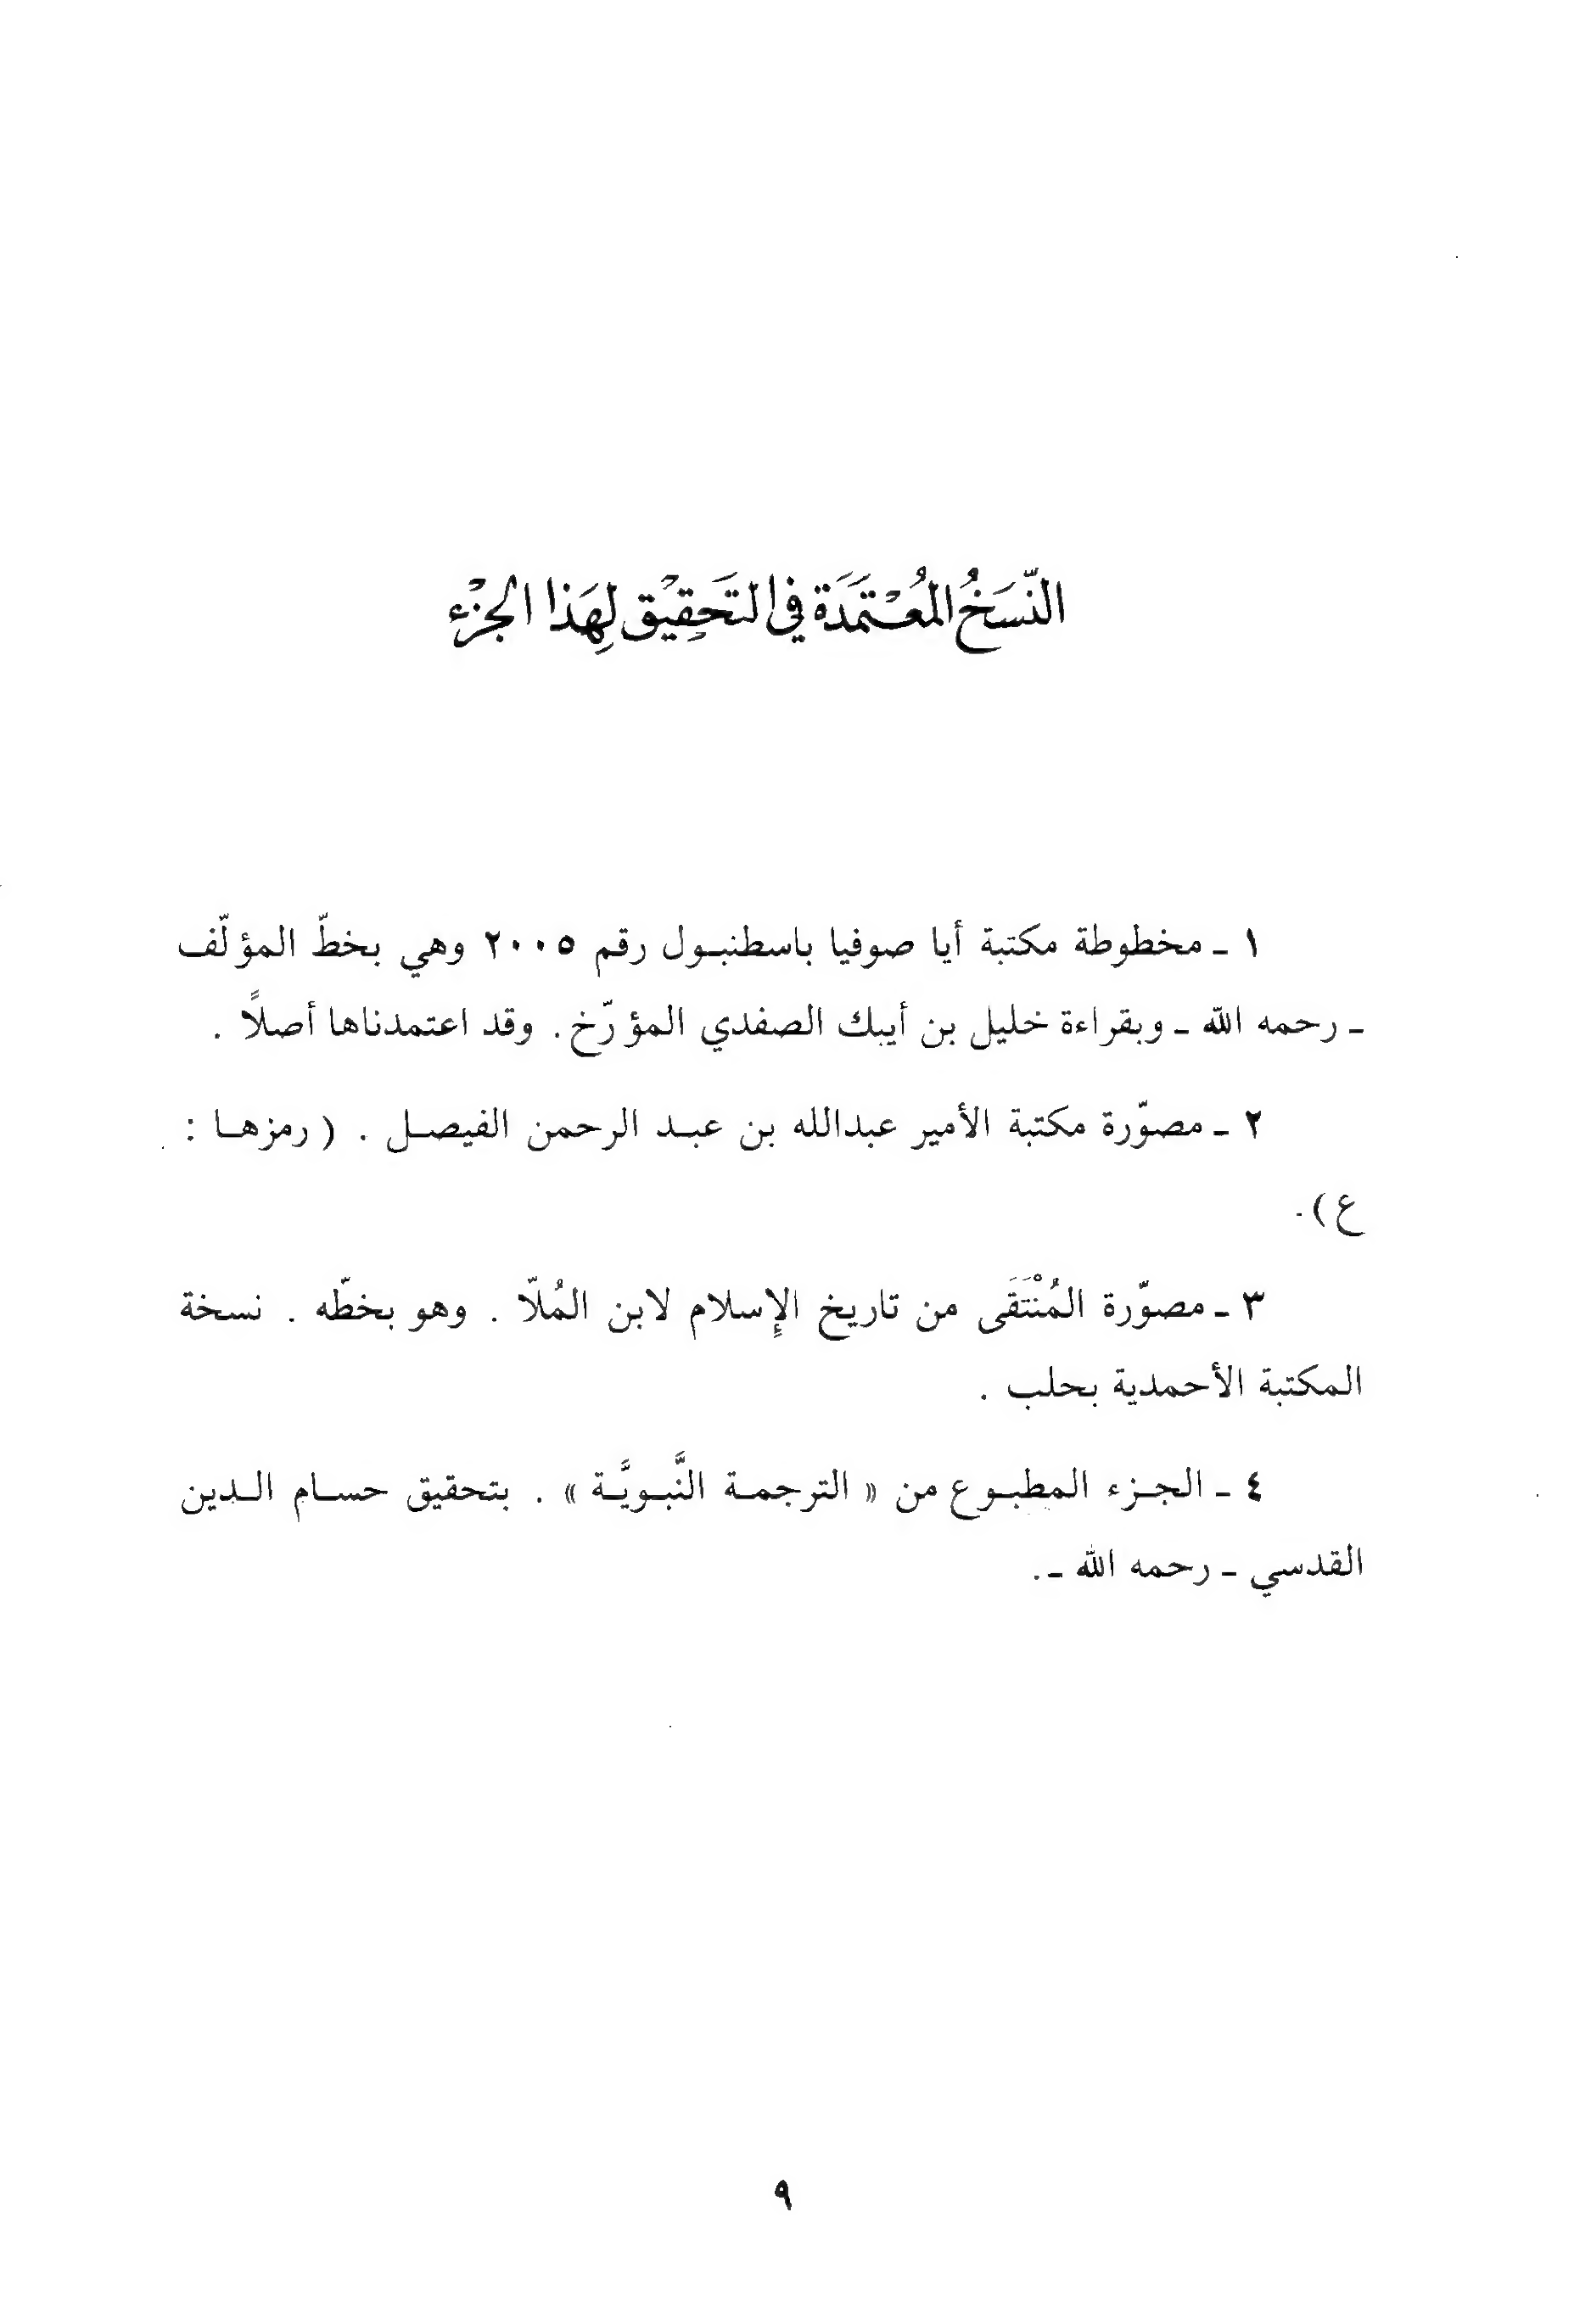 النّسَخُ المُعْتَمَدَة في التَحَقِيْق لِهَذا الجزْء
١ ـ مخطوطة مكتبة أيا صوفيا باسطنبـول رقم ٢٠٠٥ وهي بخطّ المؤلّف
ـ رحمه الله ـ وبقراءة خليل بن أيبك الصفدي المؤرّخ. وقد اعتمدناها أصلاً .
٢ ـ مصوّرة مكتبة الأمير عبدالله بن عبـد الرحمن الفيصـل . ( رمزهـا :
ع ).
٣ ـ مصوّرة المُنْتَقَى من تاريخ الإسلام لابن المُلاّ . وهو بخطّه . نسخة
المكتبة الأحمدية بحلب .
٤ ـ الجـزء المطبـوع من « الترجمـة النَّبـويَّـة » . بتحقيق حسـام الـدين
القدسي ـ رحمه الله ـ.
٩